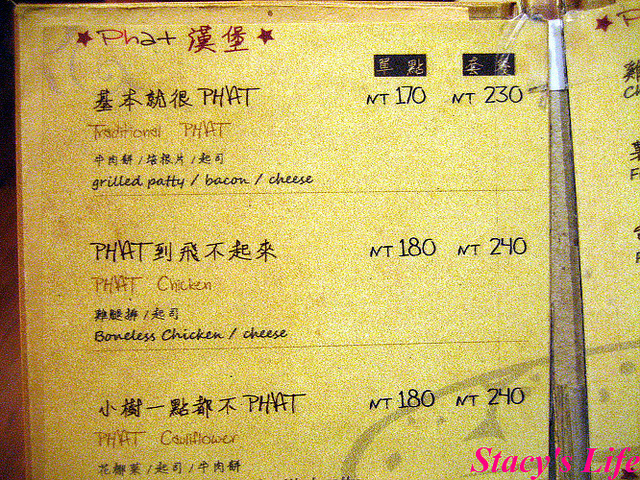 ★Phat 漢堡★
單點 套餐
基本就很 PHAT NT 170 NT 230
Traditional PHAT
牛肉餅/培根片/起司
grilled patty / bacon / cheese
PHAT到飛不起來 NT 180 NT 240
PHAT Chicken
雞腿排/起司
Boneless Chicken / cheese
小樹一點都不PHAT NT 180 NT 240
PHAT Cauliflower
花椰菜/起司/牛肉餅
Stacy's Life